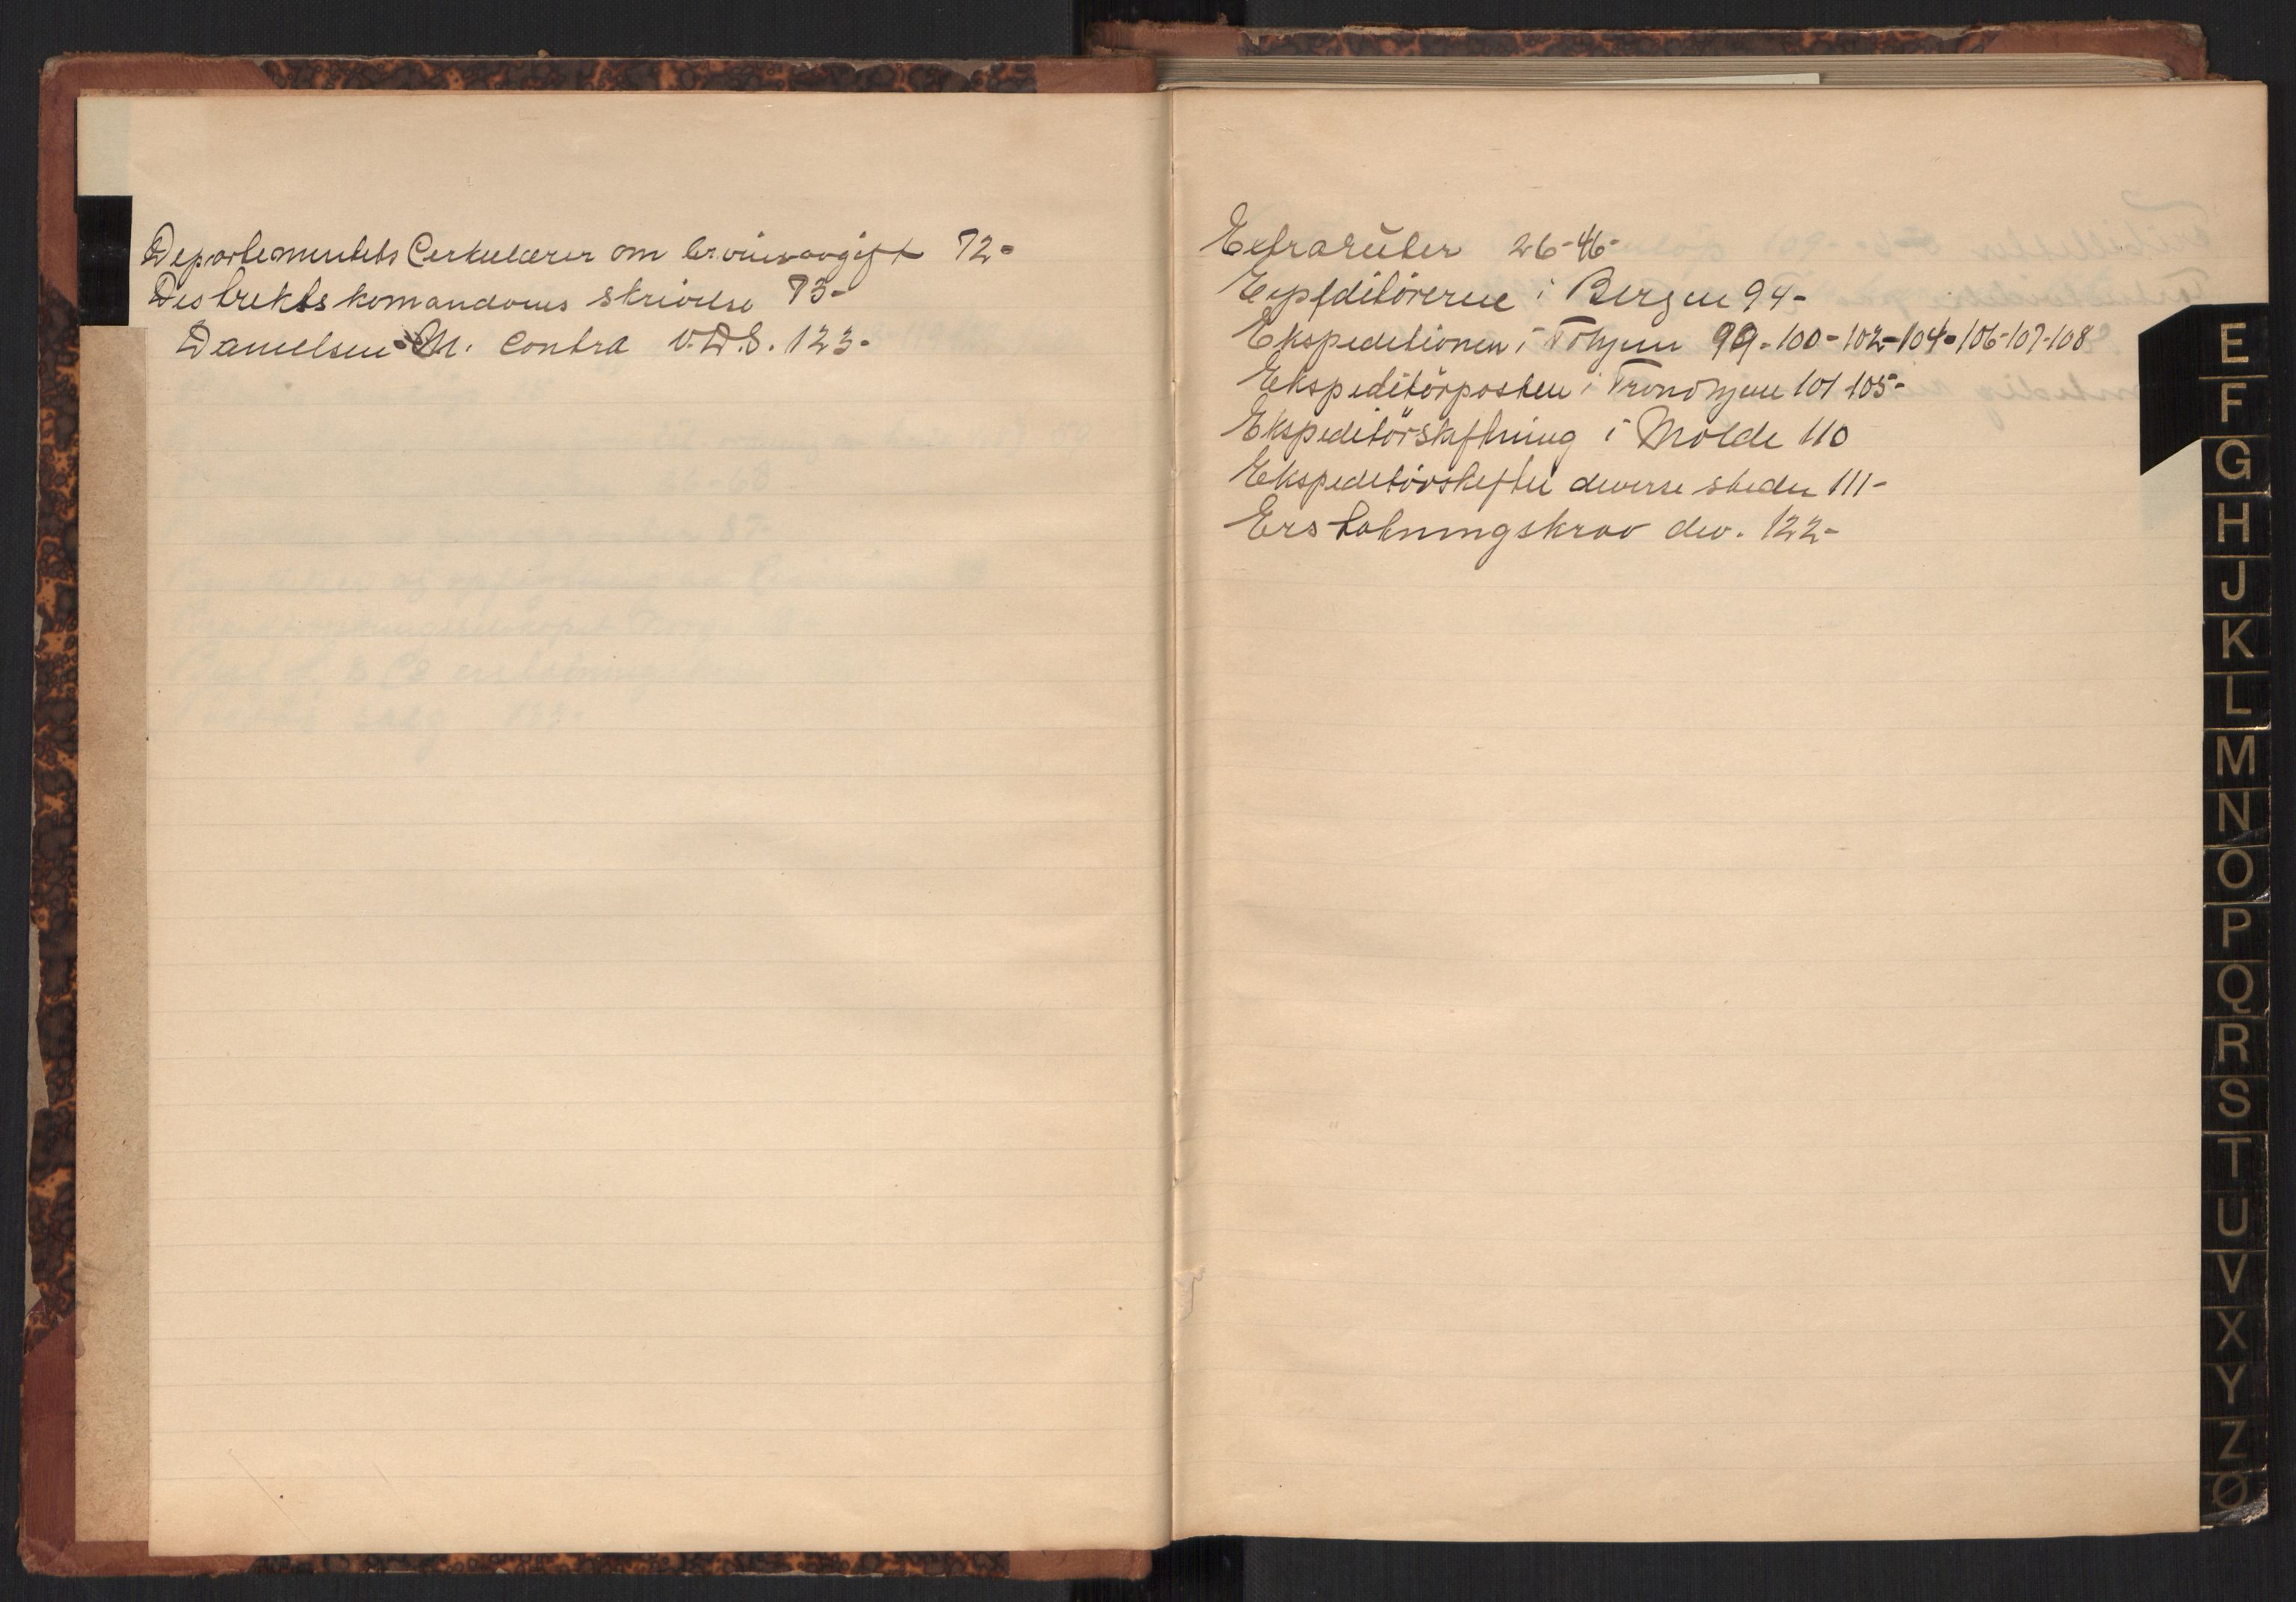 Departementets Cerkulærer om brvinsavgift 72-
Destrekts komandoens skrivelse 73-
Danielsen M. Contra V.D.S. 123-
Extraruter 26-46-
Expeditörerne i Bergen 94-
Ekspeditionen i Tohjem 99-100-102-104-106-107-108
Ekspeditörposten i Trondhjem 101 105-
Ekspeditörskiftning i Molde 110
Ekspeditörskifter diverse steder 111-
Erstatningskrav div. 122-
E
F
G
H
J
K
L
M
N
O
P
Q
R
S
T
U
V
X
Y
Z
Ø